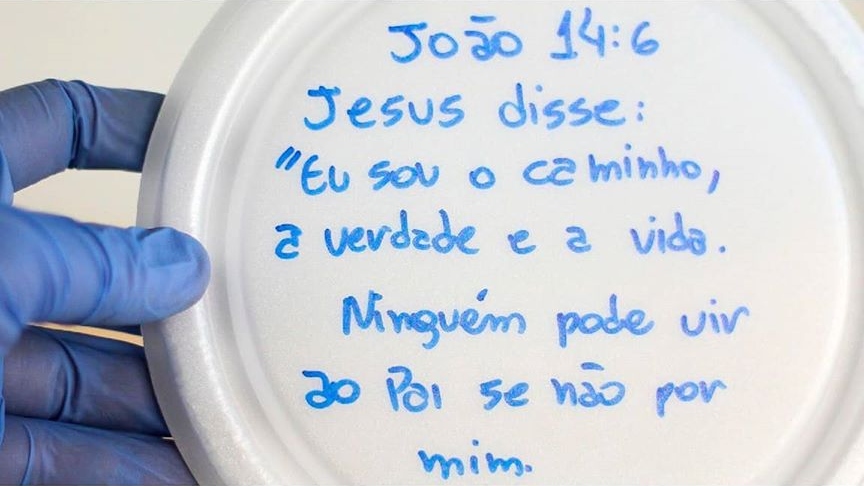 João 14:6
Jesus disse:
"Eu sou o caminho,
a verdade e a vida.
Ninguém pode vir
ao Pai se não por
mim.